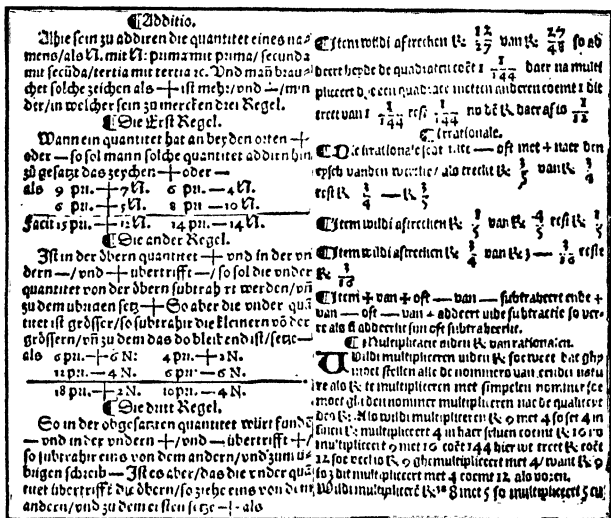 ¶Additio.
Alhie sein zu addiren die quantitet eines na⸗
mens/als N. mit N: prima mit prima/ secunda
mit secūda/tertia mit tertia ꝛc. Vnd man brau⸗
chet solche zeichen als + ist mehr/vnd —/min
der/in welcher sein zu mercken drei Regel.
¶Die Erst Regel.
Wann ein quantitet hat an beyden orten +
oder — so sol mann solche quantitet addirn hin
zů gesatzt das zeychen + oder —
als 9 pri. + 7 N. 6 pri. — 4 N.
6 pri. + 5 N. 8 pri — 10 N.
Facit 15 pri. + 12 N. 14 pri. — 14 N.
¶Die ander Regel.
Ist in der öbern quantitet + vnd in der vn
dern —/vnd + übertrifft —/so sol die vnder
quantitet von der öbern subtrahirt werden/vñ
zu dem übrigen setz + So aber die vnder quā
titet ist grösser/so subtrahir die kleinern vō der
grössern/vñ zu dem das do bleibend ist/setze —
als 6 pri. + 6 N: 4 pri + 2 N.
12 pri. — 4 N. 6 pri — 6 N.
18 pri. + 2 N. 10 pri. — 4 N.
¶Die drit Regel.
So in der obgesatzten quantitet würt funden
— vnd in der vndern +/vnd — übertrifft +/
so subtrahir eins von dem andern/vnd zum ü⸗
brigen schreib — Ist es aber/das die vnder quā
titet übertrifft die öbern/so ziehe eins von dem
andern/vnd zu dem ersten setze + als
¶Item wildi aftrecken ℞ 12/27 van ℞ 27/48 so ad
deert beyde de quadraten coēt 1 1/144 daer na multi
pliceert d een quadrate metten anderen coemt 1 die
trect van 1 1/144 rest 1/144 no dē ℞ daer af is 1/12
¶Irrationale.
— oft met + naer den
eysch vanden / als trect ℞ 3/5 van ℞ 3/4
rest ℞ 3/4 — ℞ 3/5
¶Item wildi aftrecken ℞ 1/5 van ℞ 4/5 rest ℞ 1/5
¶Item wildi aftrecken ℞ 3/4 van ℞ 3 — 1/16 reste
℞ 3/16
¶Item + van + oft — van — subtraheert ende +
van — oft — van + addeert uide subtractie so ver⸗
re als si addeerde sim oft subtraheerde.
¶Multiplicatie uiden ℞ van rationalen.
Wildi multipliceren uiden ℞ soe weet dat ghy
moet stellen alle de nommers van eender natu
re als ℞ te multipliceren met simpelen nommer soe
moet ghi den nommer multipliceren nae de qualiteyt
des ℞: Als wildi multipliceren ℞ 9 met 4 so set 4 in
sinen ℞: multipliceert 4 in haer seluen coemt ℞ 16 nv
multipliceert 9 met 16 coēt 144 hier wt trect ℞ coēt
12 soe veel is ℞ 9 ghemultipliceert met 4/ want ℞ 9
is 3 dit multipliceert met 4 coemt 12 als voren.
Wildi multiplicerē ℞ 8 met 5 so multipliceert 5 cu